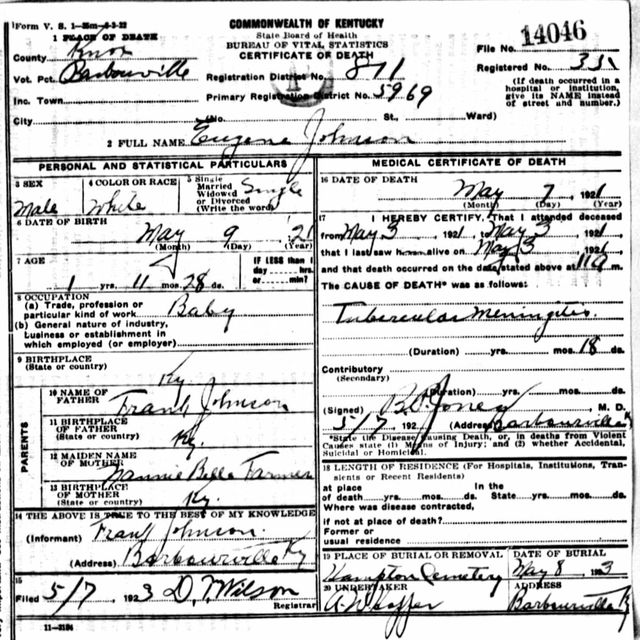 Form V. S. 1-35m-6-3-22
COMMONWEALTH OF KENTUCKY
State Board of Health
BUREAU OF VITAL STATISTICS
CERTIFICATE OF DEATH
1 PLACE OF DEATH
County Knox
Vot. Pct. Barbourville
Inc. Town
City
Registration District No. 871
Primary Registration District No. 5969
(No. St., Ward)
File No. 14046
Registered No.
(If death occurred in a
hospital or institution,
give its NAME instead
of street and number.)
2 FULL NAME Eugene Johnson
PERSONAL AND STATISTICAL PARTICULARS
3 SEX
Male
4 COLOR OR RACE
White
5 Single
Married
Widowed
or Divorced
(Write the word)
Single
6 DATE OF BIRTH
May 9 21
(Month) (Day) (Year)
7 AGE
1 yrs. 11 mos. 28 ds.
IF LESS than 1
day hrs.
or min.
8 OCCUPATION
(a) Trade, profession or
particular kind of work Baby
(b) General nature of industry,
business or establishment in
which employed (or employer)
9 BIRTHPLACE
(State or country)
Ky
PARENTS
10 NAME OF
FATHER Frank Johnson
11 BIRTHPLACE
OF FATHER
(State or country) Ky.
12 MAIDEN NAME
OF MOTHER Nannie Bella Farmer
13 BIRTHPLACE
OF MOTHER
(State or country) Ky.
14 THE ABOVE IS TRUE TO THE BEST OF MY KNOWLEDGE
(Informant) Frank Johnson.
(Address) Barbourville Ky
15
Filed 5/7 1923 D. T. Wilson
Registrar
11-3184
MEDICAL CERTIFICATE OF DEATH
16 DATE OF DEATH
May 7, 1921
(Month) (Day) (Year)
17 I HEREBY CERTIFY, That I attended deceased
from May 3 1921, to May 3 1921
that I last saw h alive on May 3 1921
and that death occurred on the date stated above at 11 a m
The CAUSE OF DEATH* was as follows:
Tubercular Meningitis.
(Duration) yrs. mos. 18 ds.
Contributory
(Secondary)
(Duration) yrs. mos. ds.
(Signed) B. D. Jones M. D.
5/7 192 (Address) Barbourville
*State the Disease Causing Death, or, in deaths from Violent
Causes state (1) Means of Injury; and (2) whether Accidental,
Suicidal or Homicidal.
18 LENGTH OF RESIDENCE (For Hospitals, Institutions, Tran-
sients or Recent Residents)
at place In the
of death yrs. mos. ds. State yrs. mos. ds.
Where was disease contracted,
if not at place of death?
Former or
usual residence
19 PLACE OF BURIAL OR REMOVAL
Hampton Cemetery
DATE OF BURIAL
May 8 1923
20 UNDERTAKER
ADDRESS
Barbourville Ky